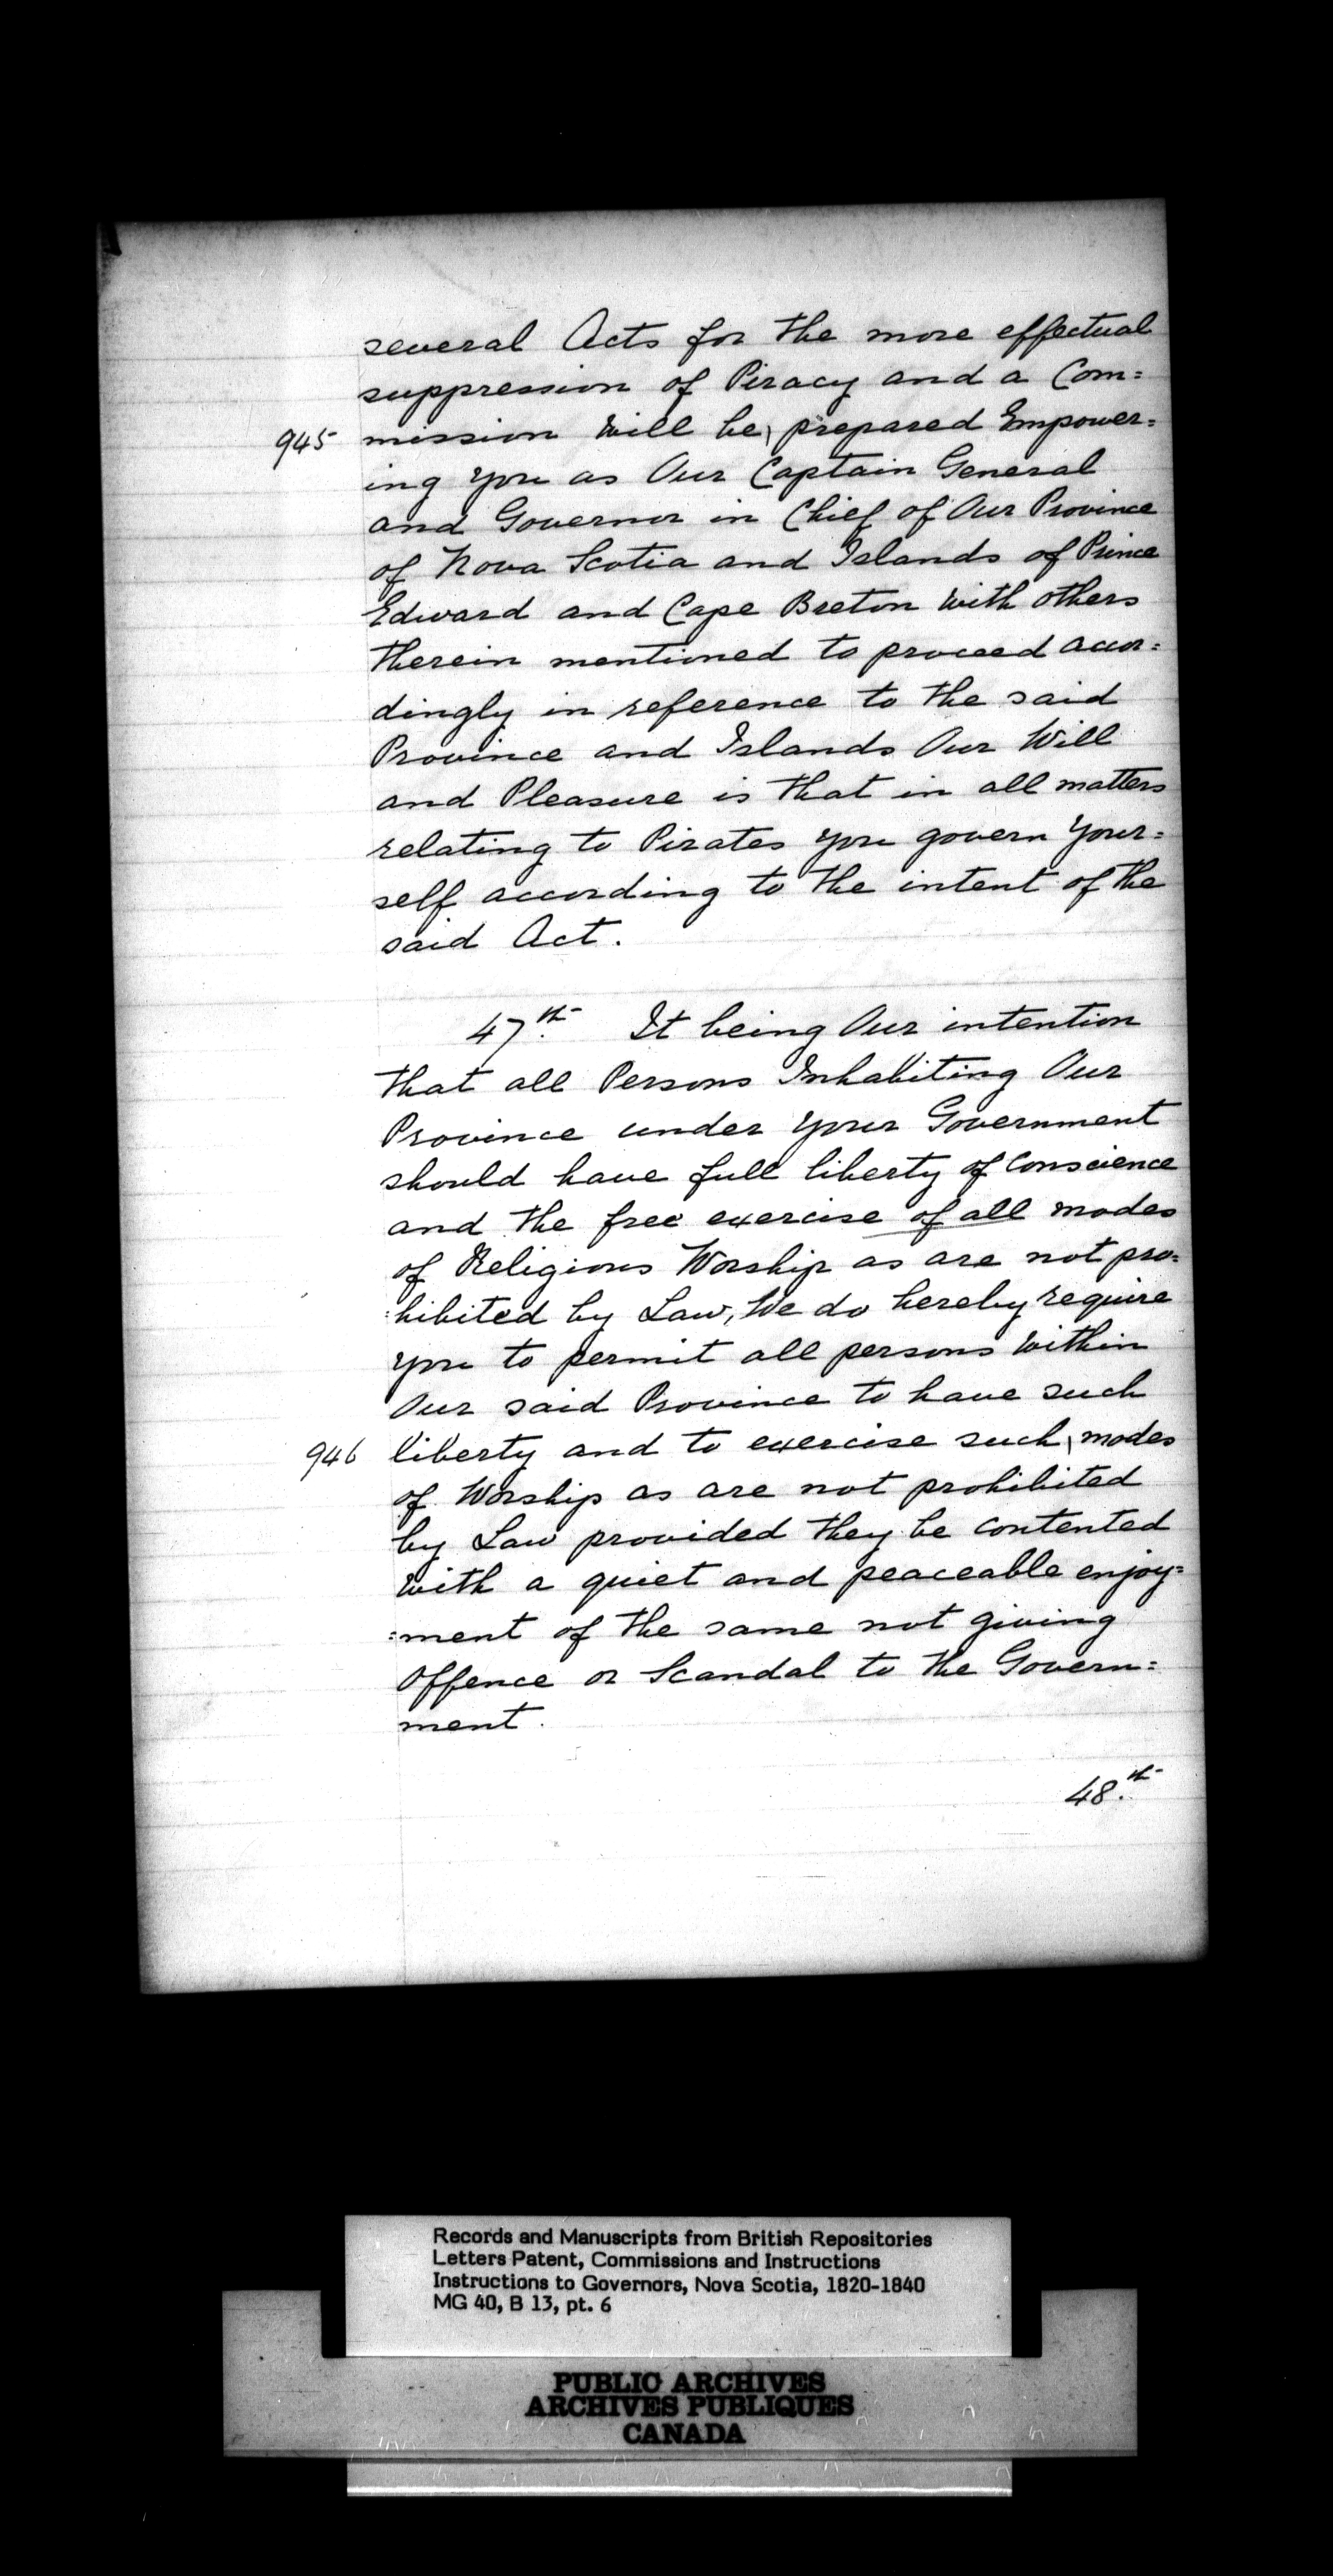 several Acts for the more effectual
suppression of Piracy and a Com=
945 mission Will be\ prepared Empower=
ing you as Our Captain General
and Governor in Chief of Our Province
of Nova Scotia and Islands of Prince
Edward and Cape Breton With others
therein mentioned to proceed accor=
dingly in reference to the said
Province and Islands Our Will
and Pleasure is that in all matters
relating to Pirates you govern Your=
self according to the intent of the
said Act.
47th. It being Our intention
that all Persons Inhabiting Our
Province under Your Government
should have full liberty of Conscience
and the free exercise of all modes
of Religious Worship as are not pro=
:hibited by Law, We do hereby require
you to permit all persons Within
Our said Province to have such
946 liberty and to exercise such\ modes
of Worship as are not prohibited
by Law provided they be contented
With a quiet and peaceable enjoy=
=ment of the same not giving
Offence or Scandal to the Govern=
ment.
48.th
Records and Manuscripts from British Repositories
Letters Patent, Commissions and Instructions
Instructions to Governors, Nova Scotia, 1820-1840
MG 40, B 13, pt. 6
PUBLIC ARCHIVES
ARCHIVES PUBLIQUES
CANADA